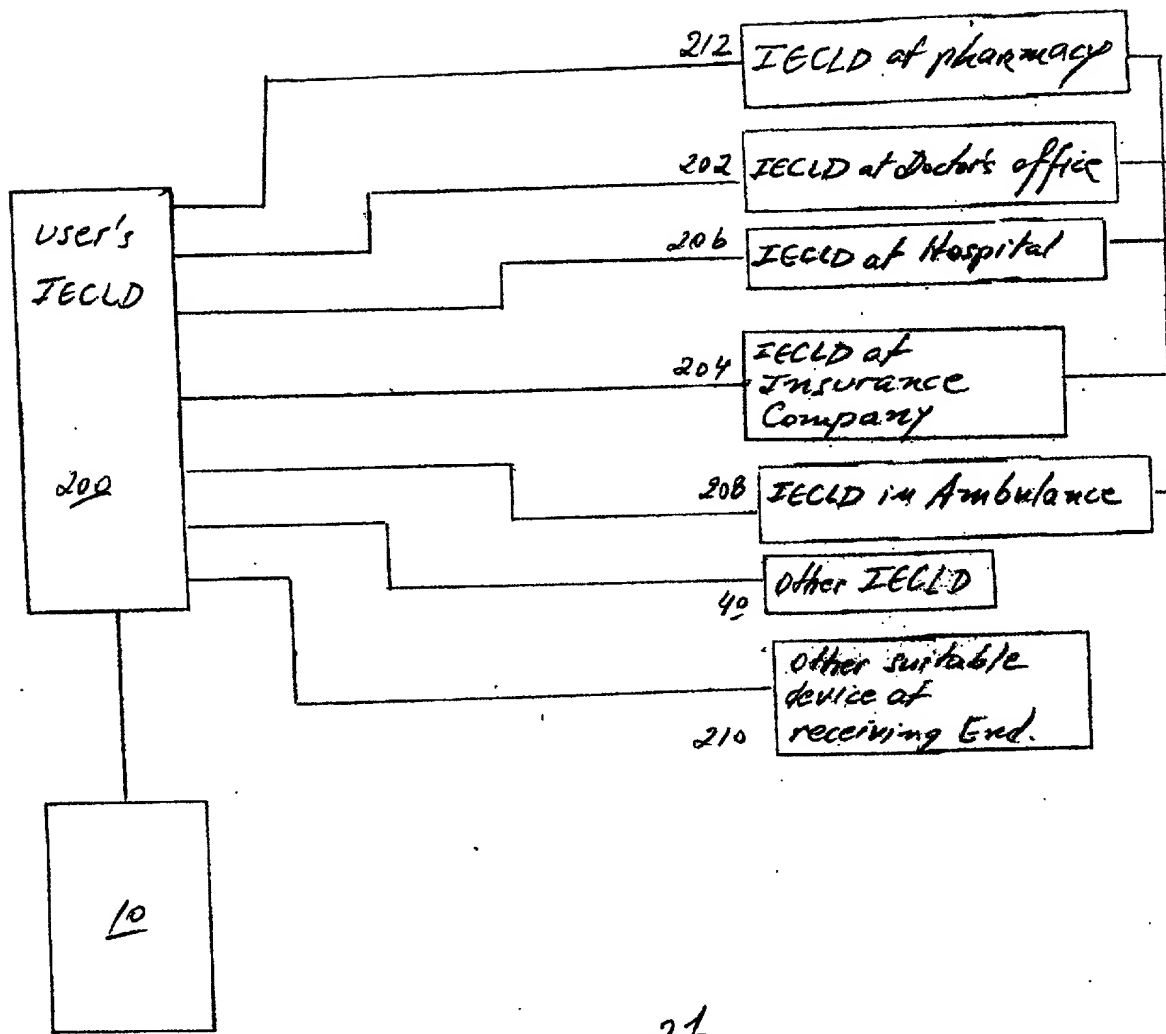 212
IECLD at pharmacy
202
IECLD at Doctor's office
206
IECLD at Hospital
user's
IECLD
200
204
IECLD at
Insurance
Company
208
IECLD in Ambulance
40
Other IECLD
210
other suitable
device at
receiving End.
10
21